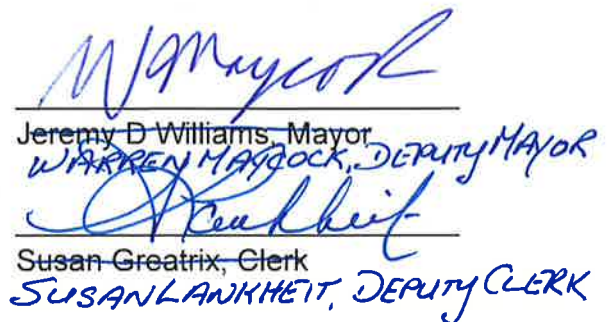 W Maycock
Jeremy D Williams, Mayor
WARREN MAYCOCK, DEPUTY MAYOR
Susan Greatrix, Clerk
SUSAN LANKHEIT, DEPUTY CLERK